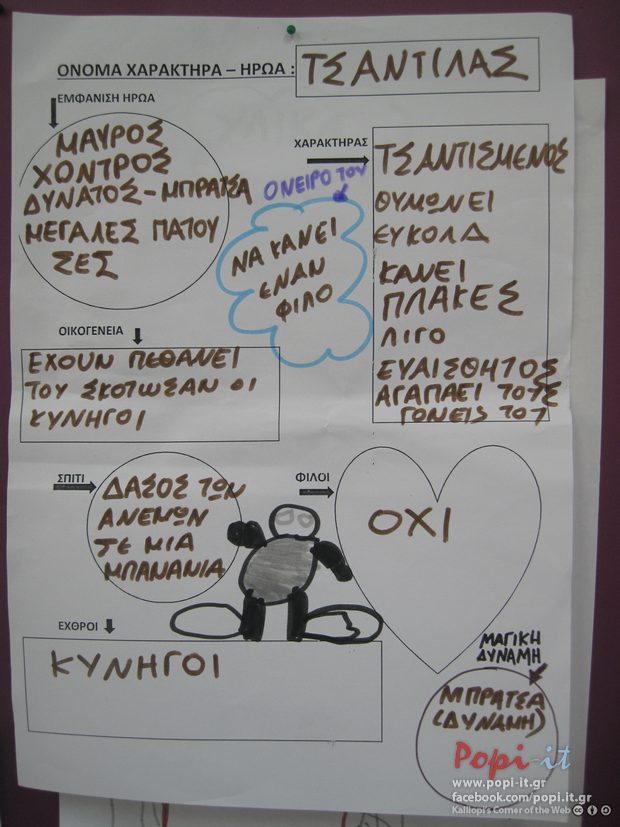 ΟΝΟΜΑ ΧΑΡΑΚΤΗΡΑ – ΗΡΩΑ : ΤΣΑΝΤΙΛΑΣ
ΕΜΦΑΝΙΣΗ ΗΡΩΑ
ΜΑΥΡΟΣ
ΧΟΝΤΡΟΣ
ΔΥΝΑΤΟΣ - ΜΠΡΑΤΣΑ
ΜΕΓΑΛΕΣ ΠΑΤΟΥ
ΣΕΣ
ΧΑΡΑΚΤΗΡΑΣ
ΤΣΑΝΤΙΣΜΕΝΟΣ
ΘΥΜΩΝΕΙ
ΕΥΚΟΛΑ
ΚΑΝΕΙ
ΠΛΑΚΕΣ
ΛΙΓΟ
ΕΥΑΙΣΘΗΤΟΣ
ΑΓΑΠΑΕΙ ΤΟΥΣ
ΓΟΝΕΙΣ ΤΟΥ
ΟΝΕΙΡΟ ΤΟΥ
ΝΑ ΚΑΝΕΙ
ΕΝΑΝ
ΦΙΛΟ
ΟΙΚΟΓΕΝΕΙΑ
ΕΧΟΥΝ ΠΕΘΑΝΕΙ
ΤΟΥ ΣΚΟΤΩΣΑΝ ΟΙ
ΚΥΝΗΓΟΙ
ΣΠΙΤΙ
ΔΑΣΟΣ ΤΩΝ
ΑΝΕΜΩΝ
ΣΕ ΜΙΑ
ΜΠΑΝΑΝΙΑ
ΦΙΛΟΙ
ΟΧΙ
ΕΧΘΡΟΙ
ΚΥΝΗΓΟΙ
ΜΑΓΙΚΗ
ΔΥΝΑΜΗ
ΜΠΡΑΤΣΑ
(ΔΥΝΑΜΗ)
Popi-it
www.popi-it.gr
facebook.com/popi.it.gr
Kalliopi's Corner of the Web